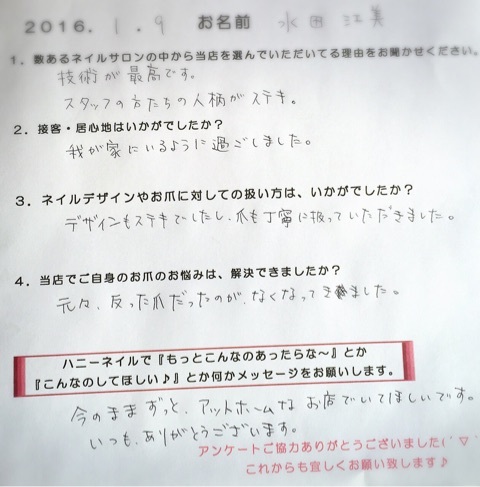 2016. 1. 9 お名前 水田 江美
1．数あるネイルサロンの中から当店を選んでいただいてる理由をお聞かせください。
技術が最高です。
スタッフの方たちの人柄がステキ。
2．接客・居心地はいかがでしたか？
我が家にいるように過ごしました。
3．ネイルデザインやお爪に対しての扱い方は、いかがでしたか？
デザインもステキでしたし、爪も丁寧に扱っていただきました。
4．当店でご自身のお爪のお悩みは、解決できましたか？
元々、反った爪だったのが、なくなってきました。
ハニーネイルで『もっとこんなのあったらな〜』とか
『こんなのしてほしい♪』とか何かメッセージをお願いします。
今のままずっと、アットホームなお店でいてほしいです。
いつも、ありがとうございます。
アンケートご協力ありがとうございました(´▽｀
これからも宜しくお願い致します♪